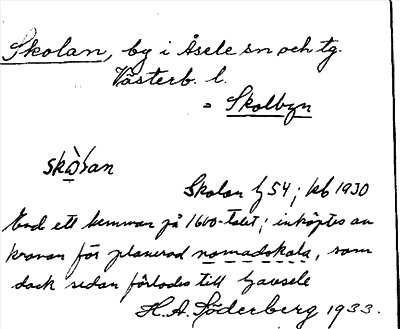 Skolan, by i Åsele sn och tg.
Västerb. l.
= Skolbyn
skòlan
Skolan h 54; kb 1930
End ett hemman på 1600-talet; inköptes av
kronan för planerad nomadskola, som
dock sedan förlades till Gavsele
H.A. Söderberg 1933.